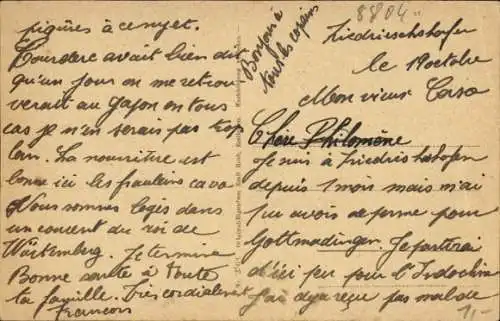 Friedrieschshafen
le 19 octobre
Mon vieux Caso
Chère Philomène
Je suis à Friedrichshafen
depuis 1 mois mais n'ai
pu avois de ferme pour
Gottmadingen. Je partirai
d'ici peu pour l'Indochine
J'ai deja reçu pas mal de
piqûres à ce sujet.
Courderc avait bien dit
qu'un jour on me retrou
verait au Gajon en tous
cas je n'en serais pas trop
loin. La nourriture est
bonne ici les frauleins ca va
Nous sommes logés dans
un couvent du roi de
Würtemberg. Je termine
Bonne santé à toute
ta famille. Très cordialement
François
Bonjour à
tous les copains
8804
1,-